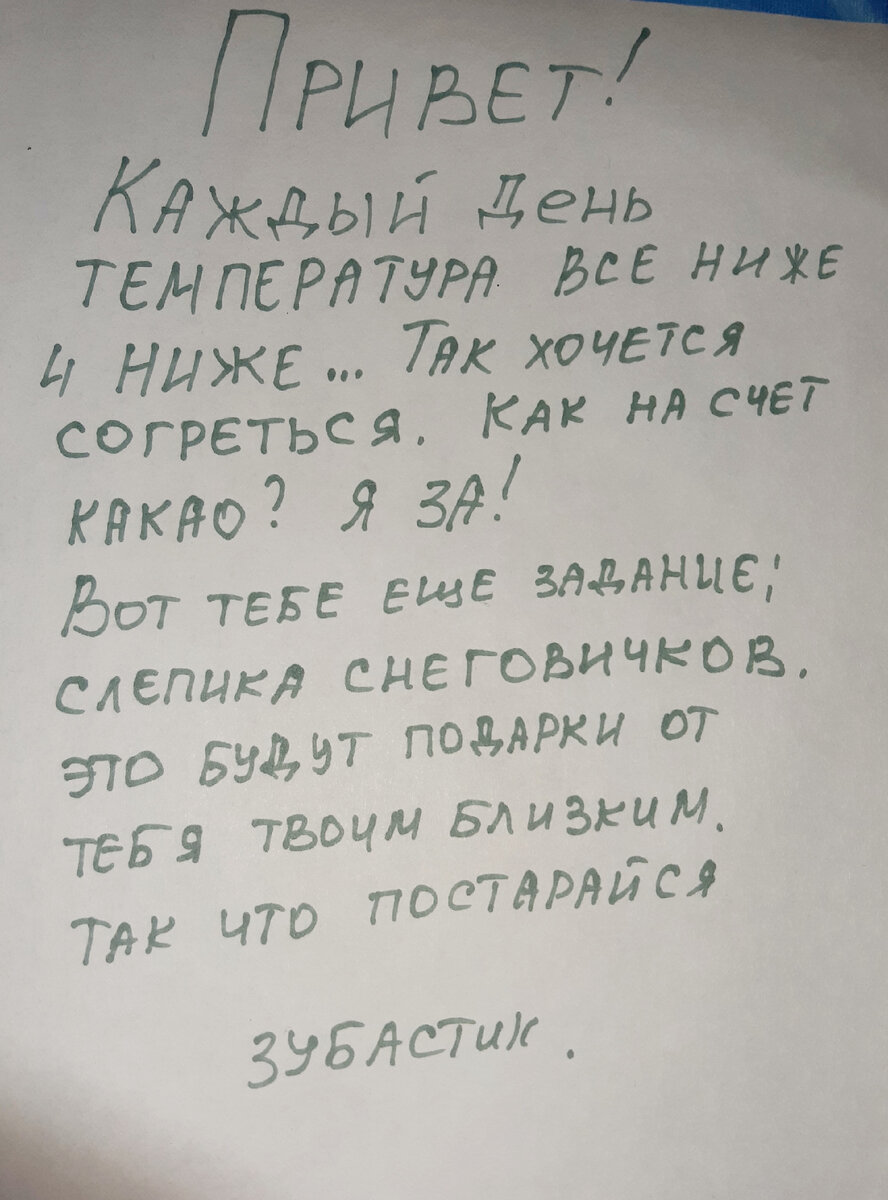 Привет!
Каждый день
температура все ниже
и ниже... Так хочется
согреться. Как на счет
какао? Я за!
Вот тебе еще задание:
слепика снеговичков.
это будут подарки от
тебя твоим близким.
так что постарайся
зубастик.